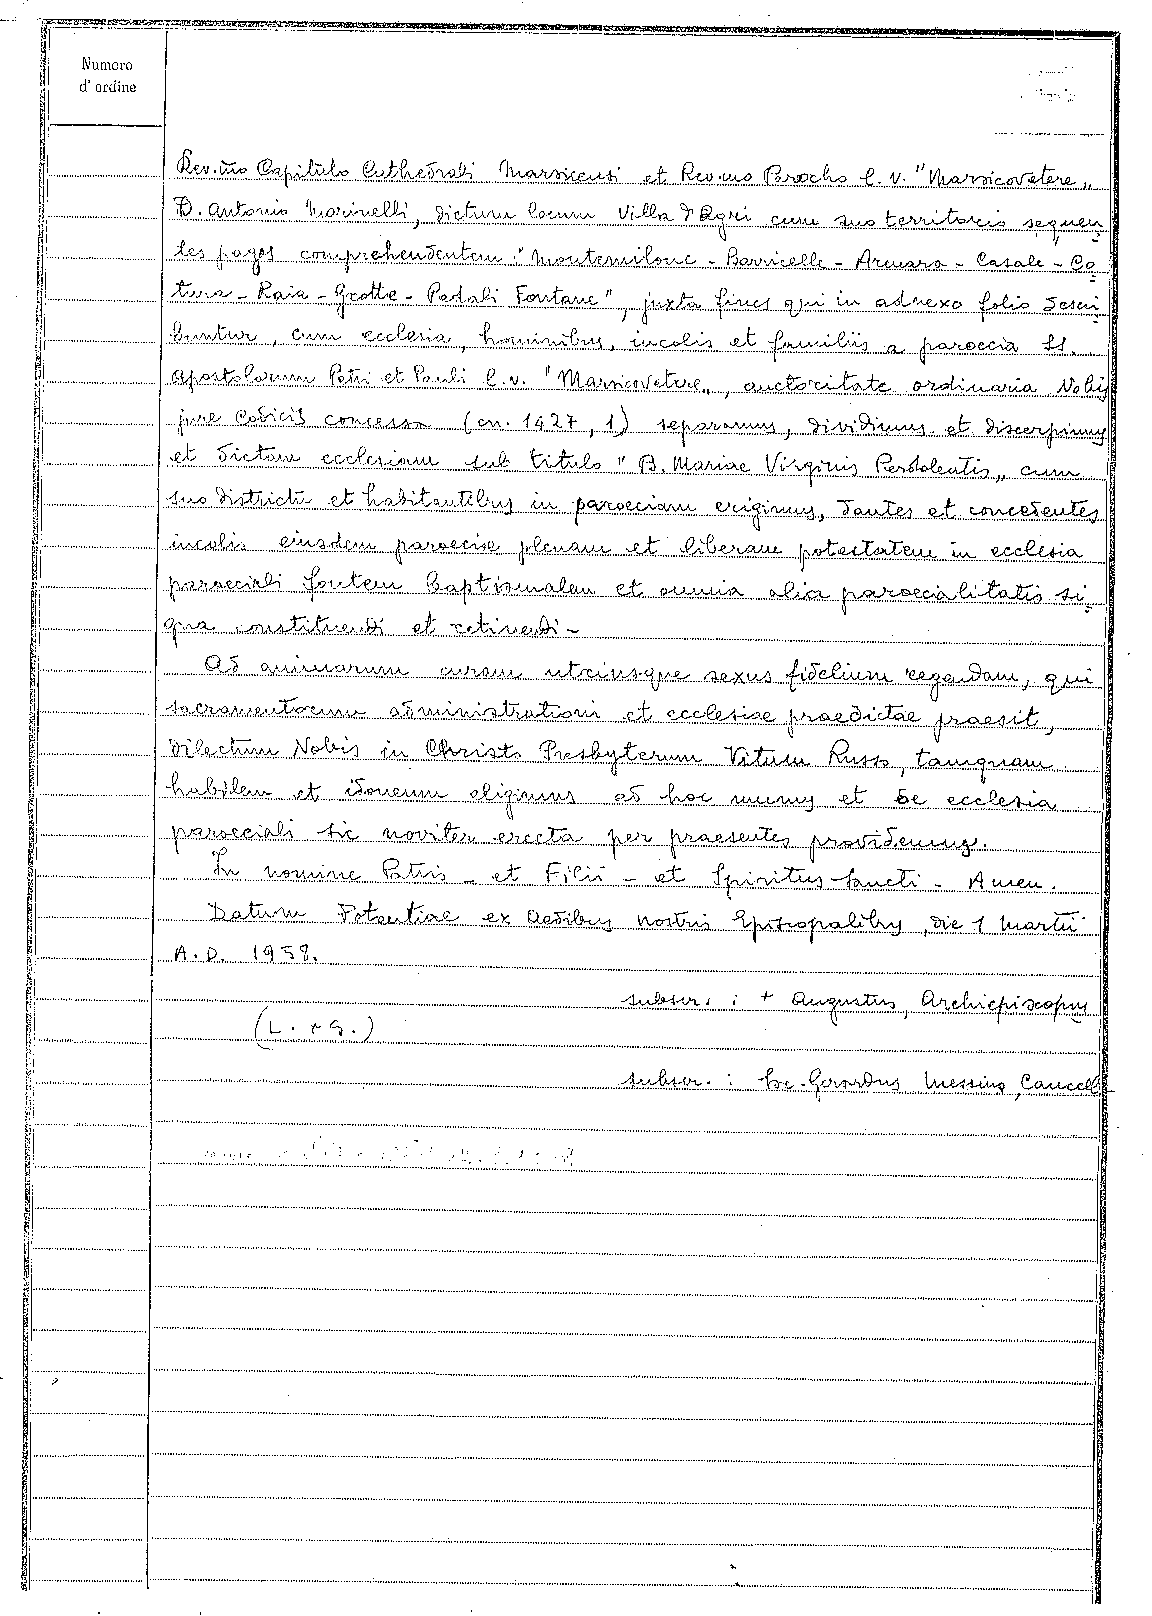 Numero
d'ordine
Rev.mo Capitulo Cathedrali Marsicensi et Rev.mo Parocho l. v. "Marsicovetere„
D. Antonio Marinelli, dictum locum Villa d'Agri cum suo territorio sequen
tes pagos comprehendentem: "Montemilone - Barricelle - Arenara - Casale - Co
tura - Raia - Grotte - Pedali Fontane", juxta fines qui in adnexo folio descri
buntur, cum ecclesia, hominibus, incolis et familiis a paroecia SS.
Apostolorum Petri et Pauli l. v. "Marsicovetere„, auctoritate ordinaria Nobis
jure Codicis concessa (cn. 1427, 1) separamus, dividimus et discerpimus
et dictam ecclesiam sub titulo "B. Mariae Virginis Perdolentis„ cum
suo districtu et habitantibus in paroeciam erigimus, dantes et concedentes
incolis eiusdem paroeciae plenam et liberam potestatem in ecclesia
paroeciali fontem baptismalem et omnia alia paroecialitatis si-
gna constituendi et retinendi -
Ad animarum curam utriusque sexus fidelium regendam, qui
sacramentorum administrationi et ecclesiae praedictae praesit,
dilectum Nobis in Christo Presbyterum Vitum Russo, tamquam
habilem et idoneum eligimus ad hoc munus et de ecclesia
paroeciali sic noviter erecta per praesentes providemus.
In nomine Patris - et Filii - et Spiritus Sancti - Amen.
Datum Potentiae ex Aedibus nostris Episcopalibus, die 1 Martii
A. D. 1958.
subscr. : + Augustus, Archiepiscopus
(L. + S.)
subscr. : Gerardus Messina, Cancell.